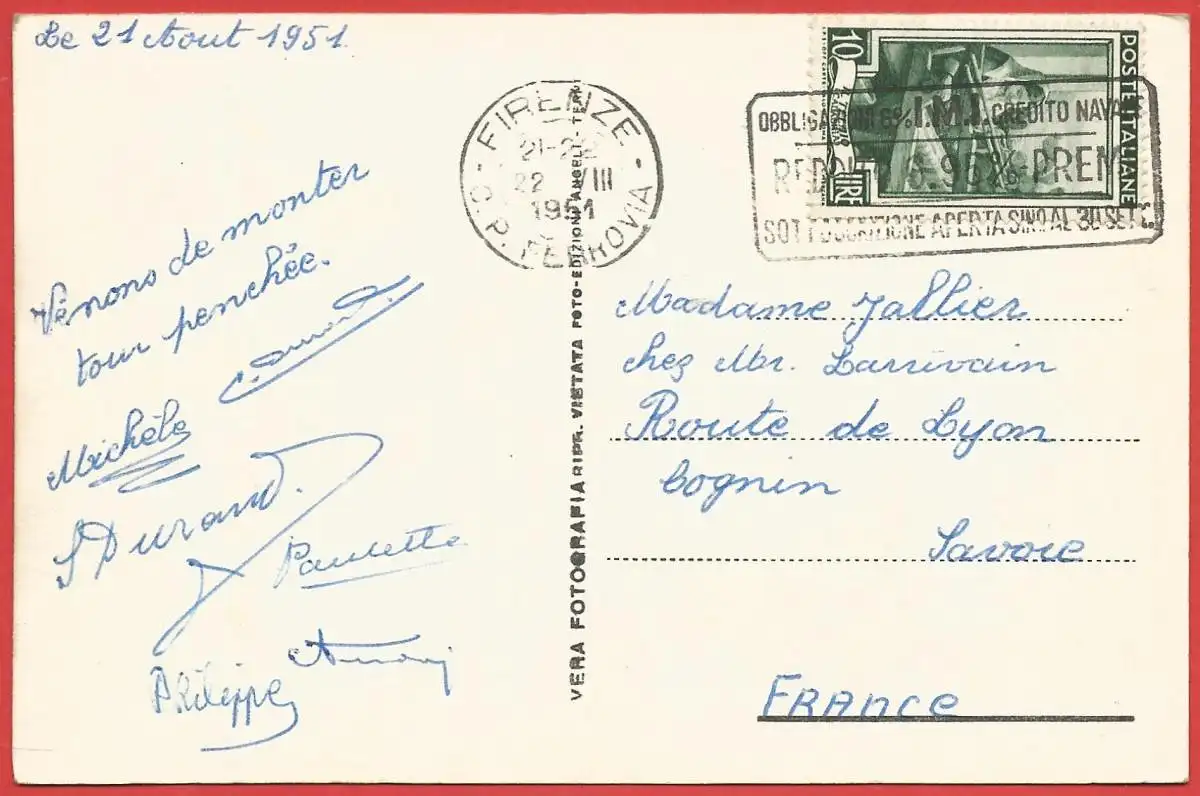 Le 21 Aout 1951.
Venons de monter
tour penchée.
Michèle
S Durand.
Paulette
Philippe
FIRENZE
21-22
22 VIII
1951
C.P. FERROVIA
VERA FOTOGRAFIA RIPR. VIETATA FOTO-EDIZIONI ANGELI-TERNI
10
LIRE
POSTE ITALIANE
I.M.I. CREDITO NAVALE
SOTTOSCRIZIONE APERTA SINO AL 30 SETT.
Madame Jallier
chez Mr. Larrivain
Route de Lyon
Cognin
Savoie
FRANCE